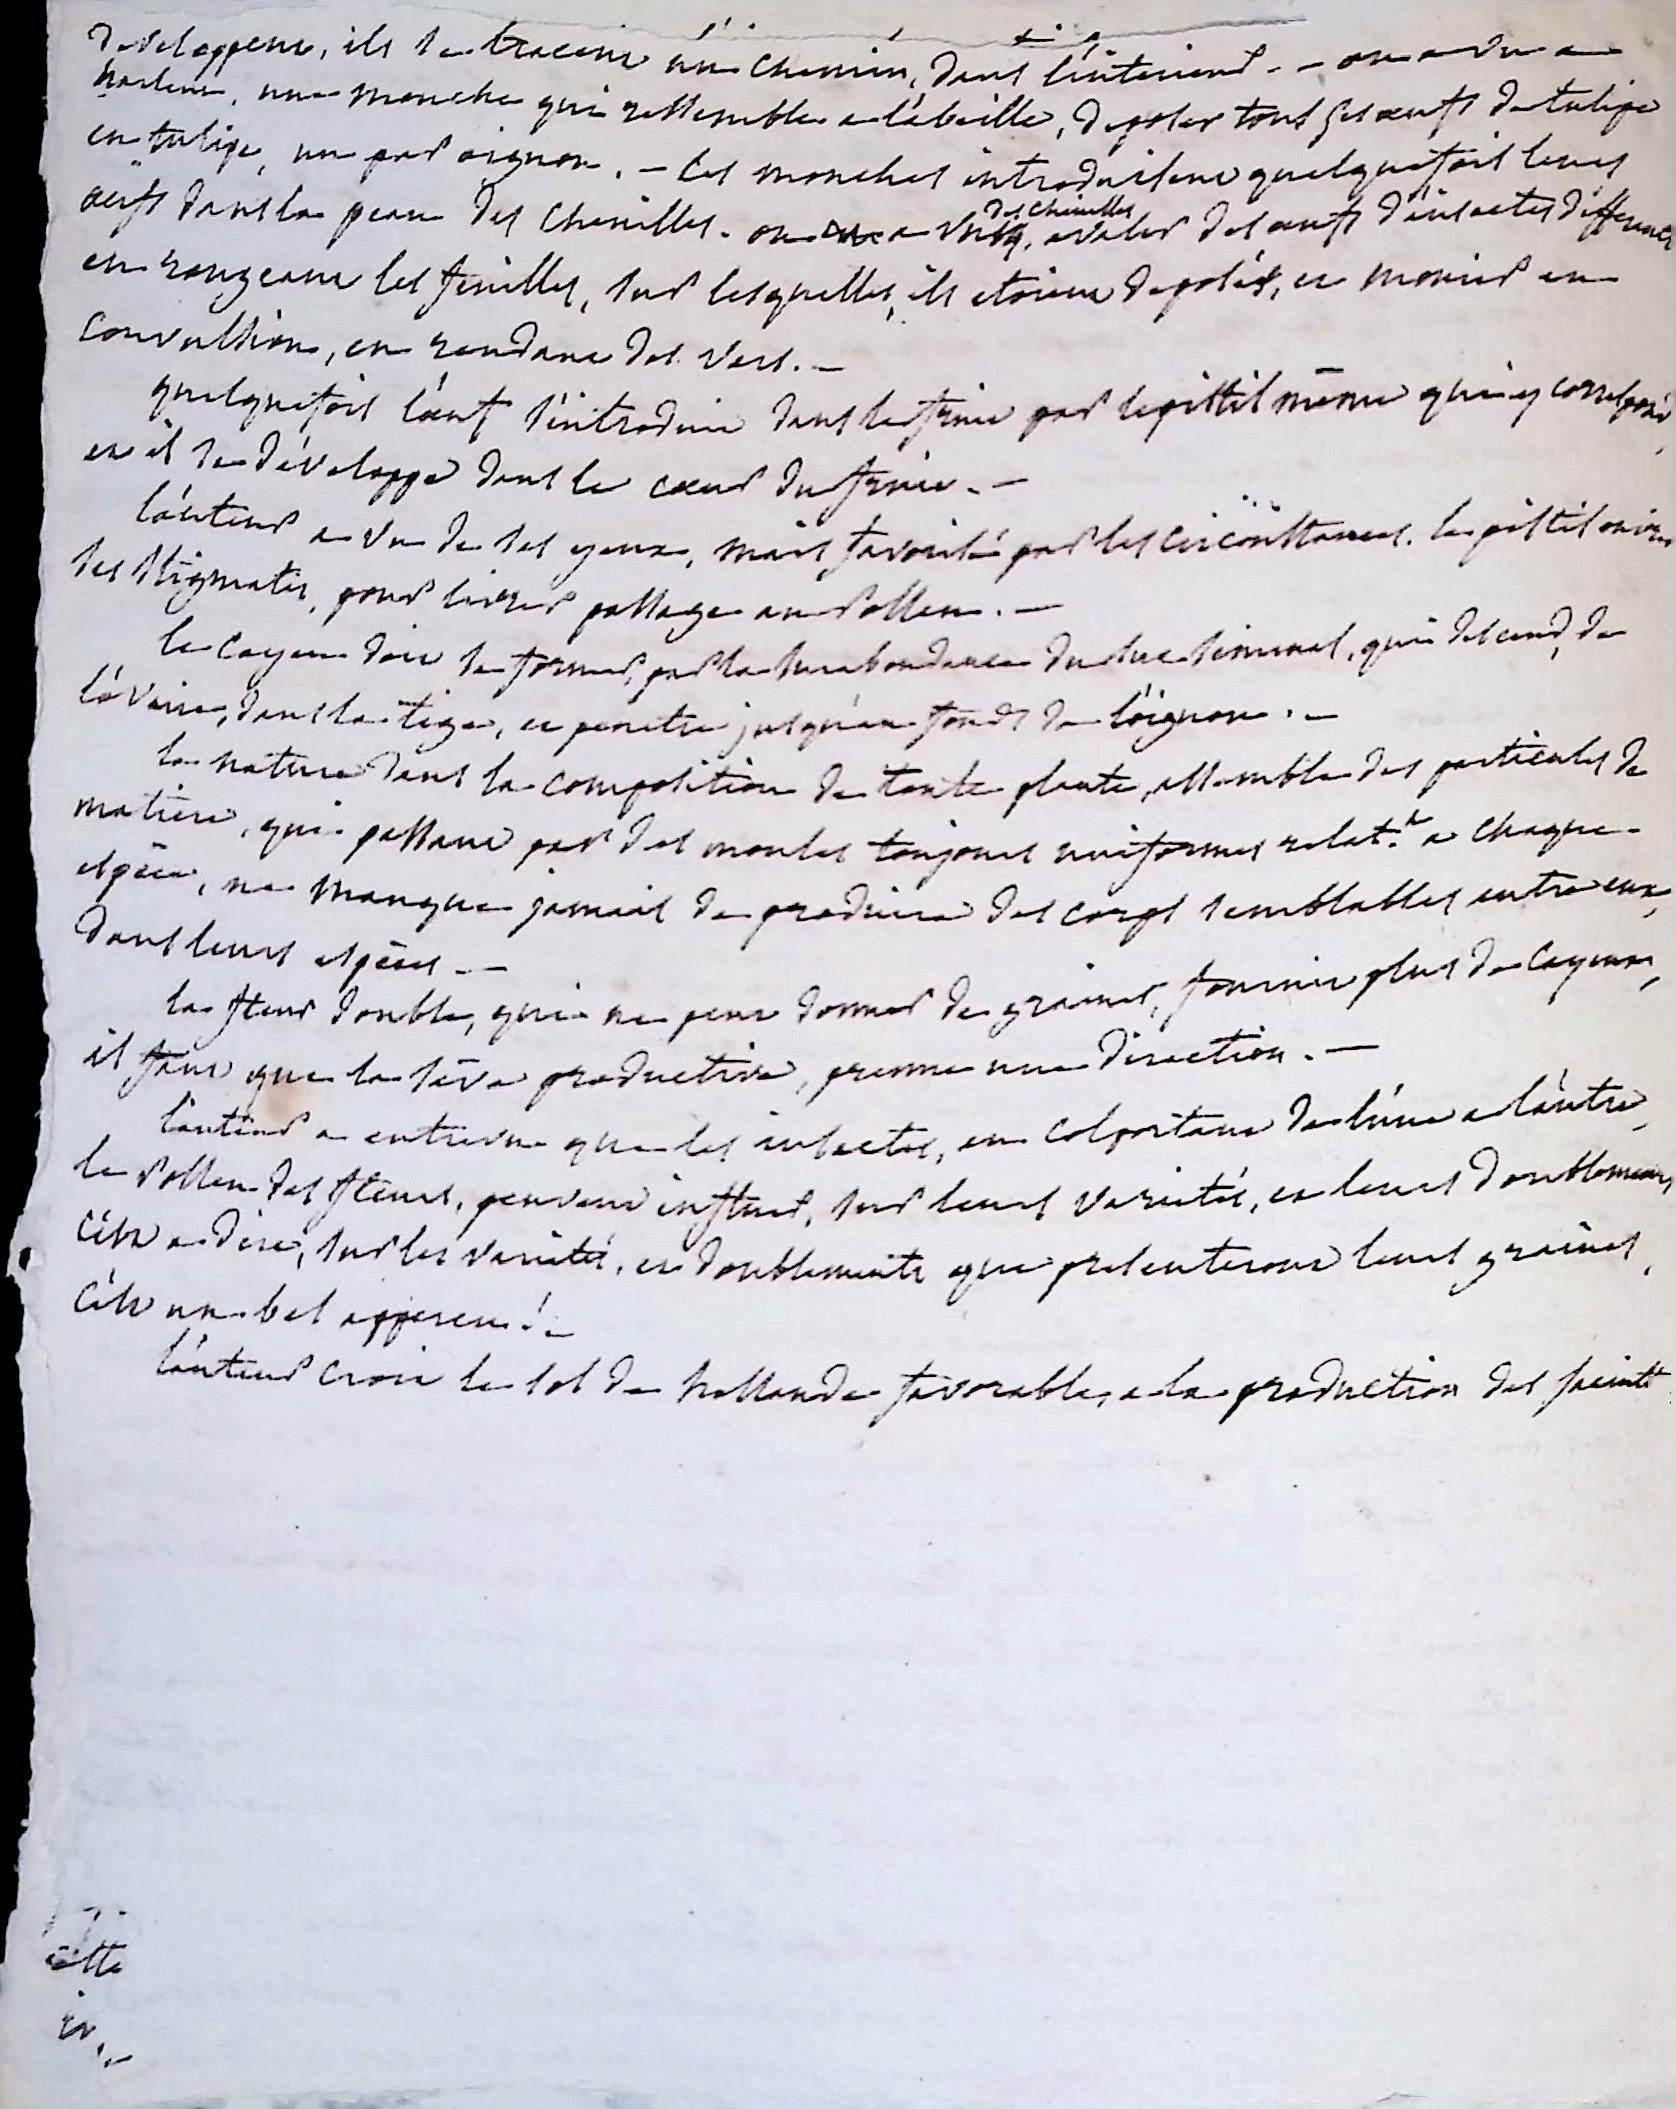 developpent, ils se tracent un chemin, dans l'intérieur. - on a vu a
harlem, une mouche qui ressemble a l'abeille, deposer tous ses œufs de tulipe
en tulipe, un par oignon. - Ces mouches introduisent quelquefois leurs
œufs dans la peau des chenilles. on a vu des chenilles, avaler des œufs d'insectes differents
en rongeant les feuilles, sur lesquelles, ils etoient deposés, et mourir en
convulsion, en rendant des vers. -
quelquefois l'œuf s'introduit dans le fruit par le pistil même qui y correspond,
et il se développe dans le cœur du fruit. -
l'auteur a vu de ses yeux, mais favorisé par les circonstances. le pistil ouvrir
ses stigmates, pour livrer passage au Pollen. -
le cayeu doit se former, par la surabondance du suc seminal, qui descend, de
l'ovaire, dans la tige, et penetre jusqu'au fond de l'oignon. -
la nature dans la composition de toute plante, assemble des particules de
matiere, qui passant par des moules toujours uniformes relat.t a chaque
espèce, ne manque jamais de produire des corps semblables entre eux,
dans leurs espèces. -
la fleur double, qui ne peut donner de graines, fournit plus de Cayeux,
il faut que la sève productive, prenne une direction. -
l'auteur a entrevu que les insectes, en colportant de l'une a l'autre,
le Pollen des fleurs, peuvent influer, sur leurs variétés, et leurs doublements,
c'est a dire, sur les variétés, et doublements que presenteront leurs graines,
c'est un bel apperçu! -
l'auteur croit le sol de hollande favorable, a la production des jacint
cette